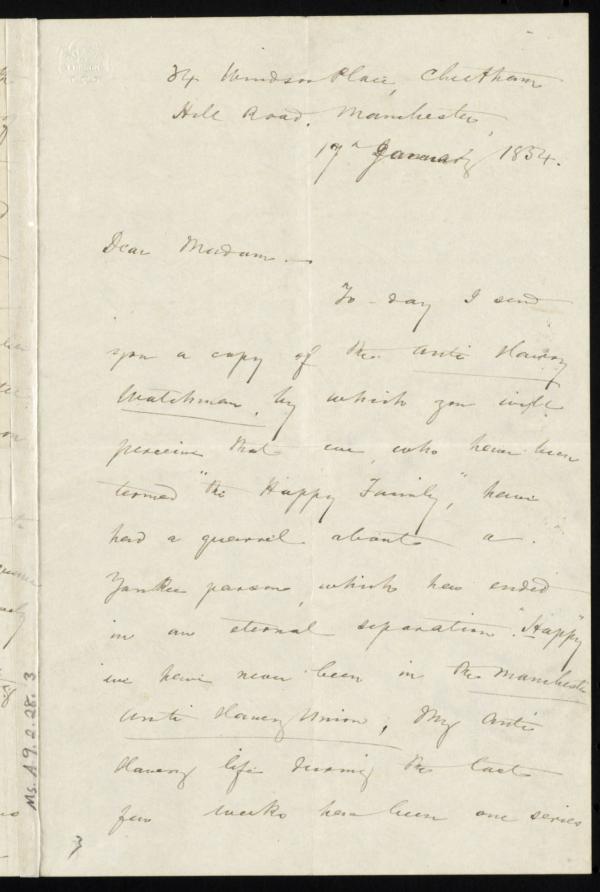 34 Windsor Place, Cheetham
Hill Road, Manchester,
17th January 1854.
Dear Madam,—
To-day I send
you a copy of the Anti Slavery
Watchman, by which you will
perceive that we, who have been
termed "the Happy Family," have
had a quarrel about a
Yankee parson, which has ended
in an eternal separation. "Happy"
we have never been in the Manchester
Anti Slavery Union, My Anti
Slavery life during the last
few weeks has been one series
3
Ms. A.9.2.28.3